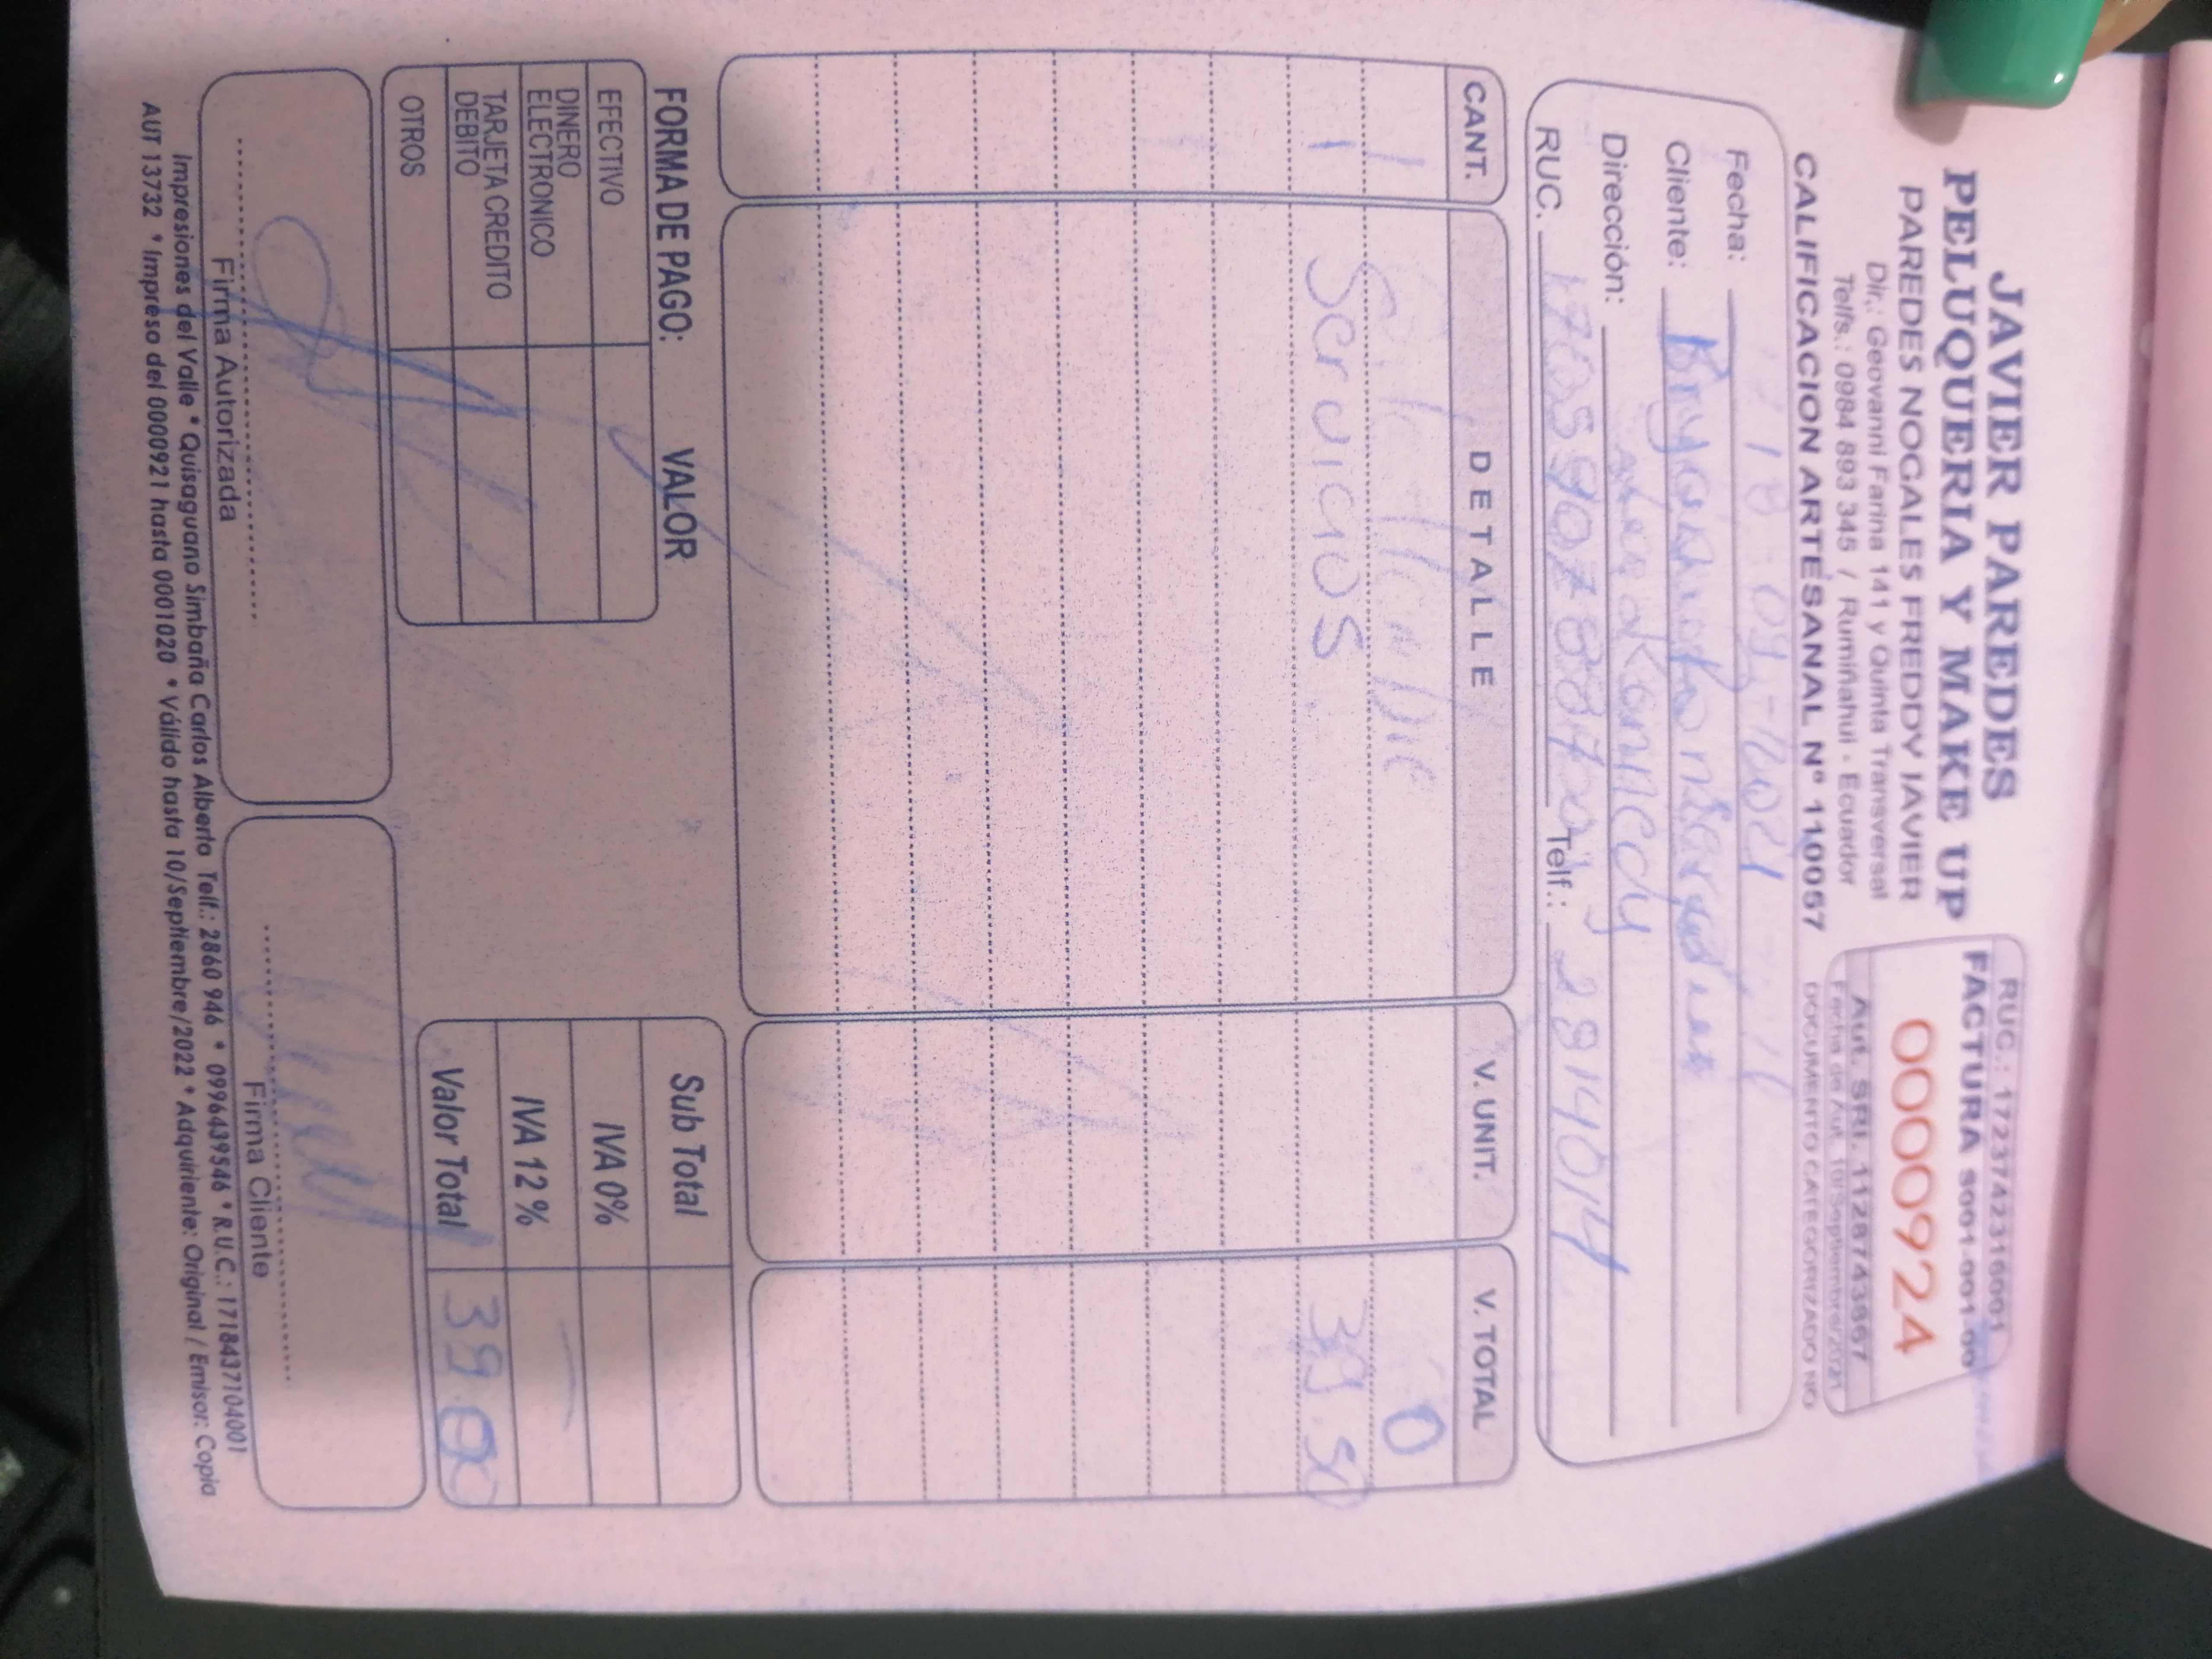 JAVIER PAREDES
PELUQUERIA Y MAKE UP
PAREDES NOGALES FREDDY JAVIER
Dir.: Geovanni Farina 141 y Quinta Transversal
Telfs.: 0984 893 345 / Rumiñahui - Ecuador
CALIFICACION ARTESANAL N° 110057
RUC.: 1723742316001
FACTURA S001-001-00
0000924
Aut. SRI. 1128743867
Fecha de Aut. 10/Septiembre/2021
DOCUMENTO CATEGORIZADO NO
Fecha: 18-09-2021
Cliente:
Dirección: Kennedy
RUC. Telf.: 2814014
CANT. DETALLE V. UNIT. V. TOTAL
1 0
1 Servicios 39.50
FORMA DE PAGO: VALOR
EFECTIVO
DINERO ELECTRONICO
TARJETA CREDITO DEBITO
OTROS
Sub Total
IVA 0%
IVA 12 %
Valor Total 39
Firma Autorizada
Firma Cliente
Impresiones del Valle * Quisaguano Simbaña Carlos Alberto Telf.: 2860 946 * 0996439546 * R.U.C.: 1718437104001
AUT 13732 * Impreso del 0000921 hasta 0001020 * Válido hasta 10/Septiembre/2022 * Adquiriente: Original / Emisor: Copia